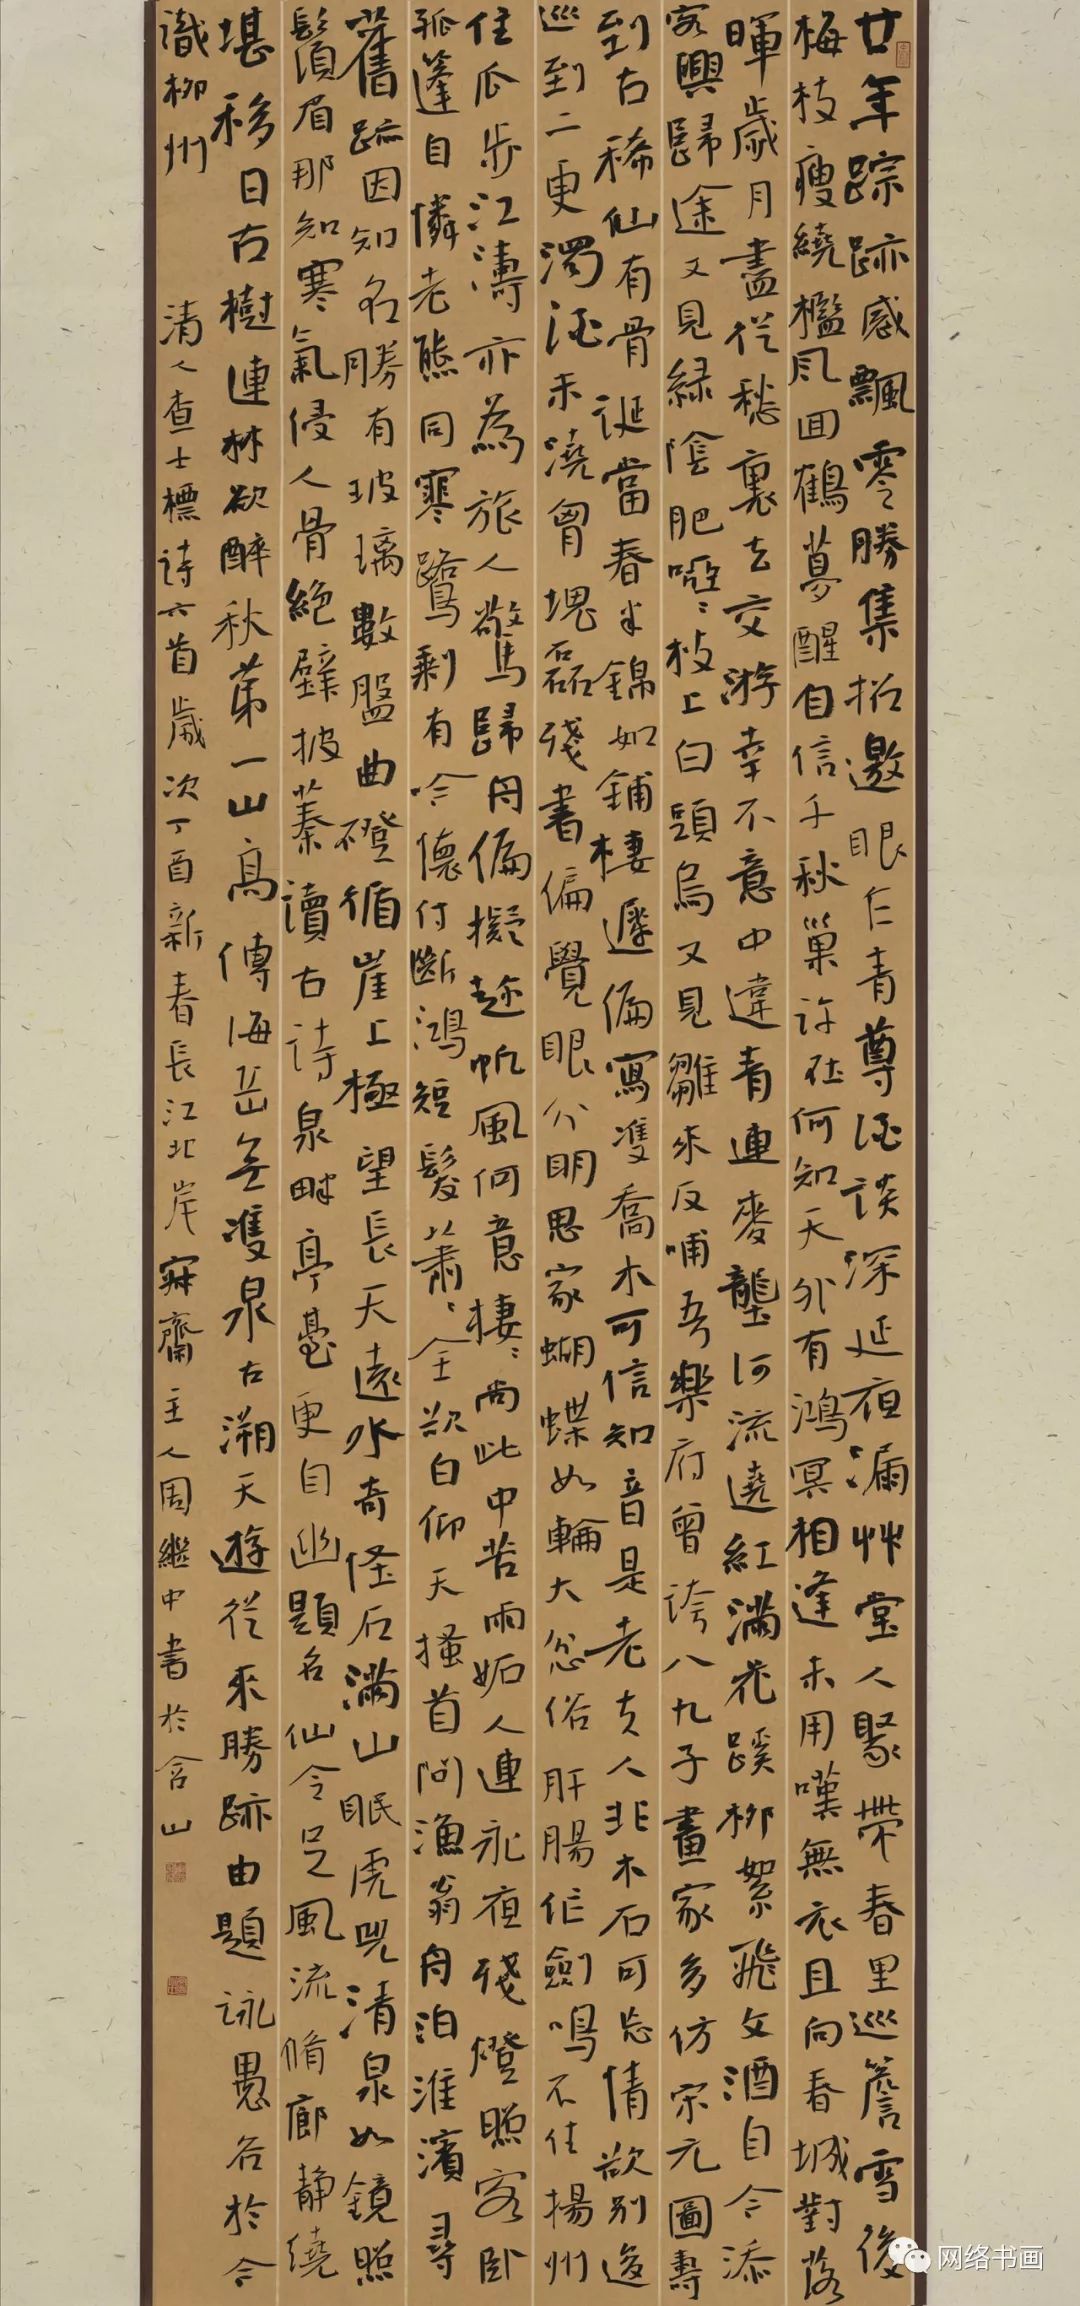 廿年踪跡感飄零勝集招邀眼乍青尊酒談深延夜漏艸堂人聚帶春星巡簷雪後
梅枝瘦繞檻風回鶴夢醒自信千秋巢許在何知天外有鴻冥相逢未用嘆無衣且向春城對落
暉歲月盡從愁裏去交游幸不意中違青連麥壟河流遶紅滿花蹊柳絮飛文酒自今添
客興歸途又見綠陰肥啞啞枝上白頭烏又見雛來反哺吾樂府曾誇八九子畫家多仿宋元圖壽
到古稀仙有骨誕當春半錦如鋪棲遲偏寫雙喬木可信知音是老夫人非木石可忘情欲別逡
巡到二更濁酒未澆胷塊磊殘書偏覺眼分明思家蝴蝶如輪大忿俗肝腸作劍鳴不住揚州
住瓜步江濤亦為旅人驚歸舟偏擬趁帆風何意棲棲尚此中苦雨妬人連永夜殘燈照客臥
孤蓬自憐老熊同寒鷺剩有吟懷付斷鴻短髮蕭蕭全欲白仰天搔首問漁翁舟泊淮濱尋
舊跡因知名勝有玻璃數盤曲磴循崖上極望長天遠水奇怪石滿山眠虎兕清泉如鏡照
鬚眉那知寒氣侵人骨絕壁披蓁讀古詩泉畔亭臺更自幽題名仙令足風流脩廊靜繞
堪移日古樹連林欲醉秋第一山高傳海岳無雙泉古溯天游從來勝跡由題詠愚谷於今
識柳州
清人查士標詩六首歲次丁酉新春長江北岸寐齋主人周繼中書於含山
网络书画